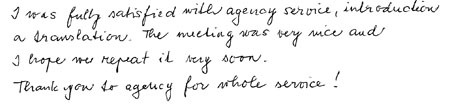 I was fully satisfied with agency service, introduction
a translation. The meeting was very nice and
I hope we repeat it very soon.
Thank you to agency for whole service!